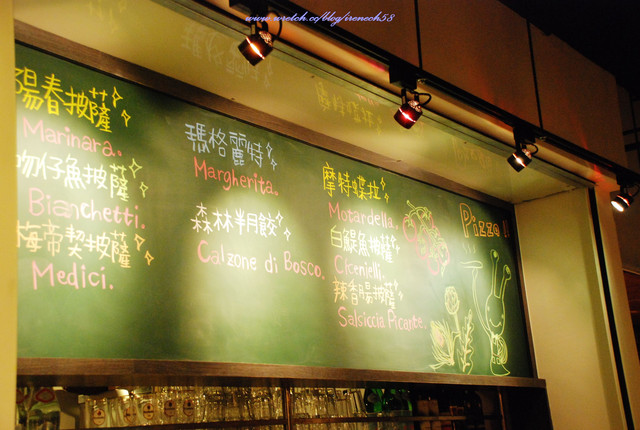 www.wretch.cc/blog/irenech58
陽春披薩
Marinara.
吻仔魚披薩
Bianchetti.
梅帝契披薩
Medici.
瑪格麗特
Margherita.
森林半月餃
Calzone di Bosco.
摩特蝶拉
Motardella.
白鯷魚披薩
Cicenielli.
辣香腸披薩
Salsiccia Picante.
Pizza!!